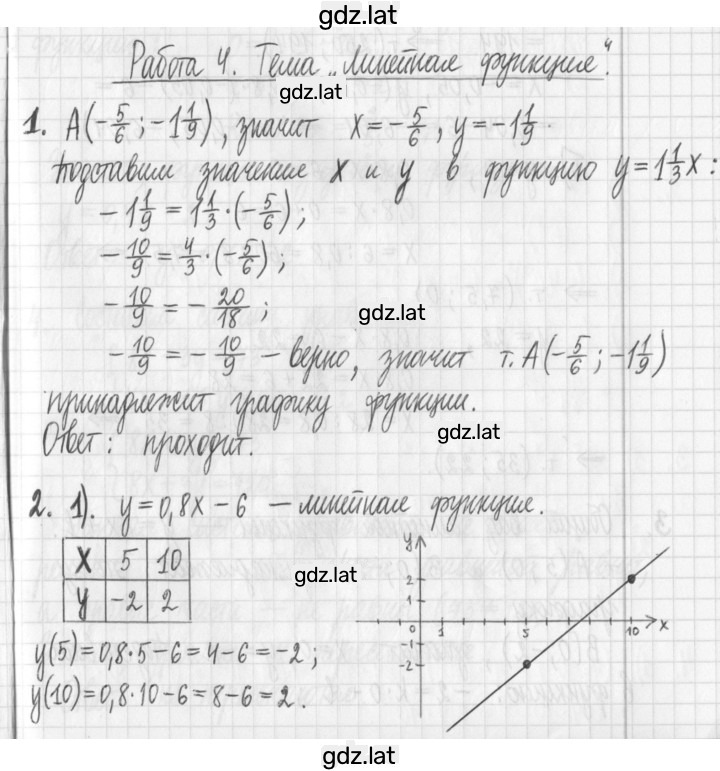 gdz.lat
Работа 4. Тема „Линейная функция".
gdz.lat
1. А(-5/6; -1 1/9), значит x = -5/6, y = -1 1/9.
Подставим значение x и y в функцию y = 1 1/3 x:
-1 1/9 = 1 1/3 · (-5/6);
-10/9 = 4/3 · (-5/6);
-10/9 = -20/18;
gdz.lat
-10/9 = -10/9 – верно, значит т. А(-5/6; -1 1/9)
принадлежит графику функции.
gdz.lat
Ответ: проходит.
2. 1). y = 0,8x - 6 – линейная функция.
x 5 10
y -2 2
gdz.lat
y(5) = 0,8·5 - 6 = 4 - 6 = -2;
y(10) = 0,8·10 - 6 = 8 - 6 = 2.
y
2
1
0 1 5 10 x
-1
-2
gdz.lat
gdz.lat